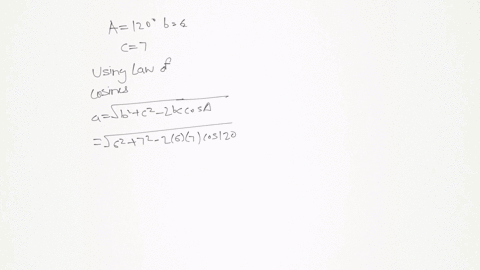 A = 120° b = 6
c = 7
Using Law of
cosines
a = √b²+c²-2bc cosA
= √6²+7²-2(6)(7) cos120